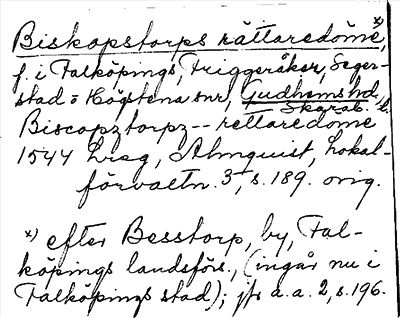 Biskopstorps rättaredöme,*)
f. i Falköpings, Friggeråker, Seger-
stad o Högstena snr, Gudhems hd,
Skarab. l.
Biscopztorpz -- rettaredöme
1544 Lieg, Almquist, Lokal-
förvaltn. 3, s. 189. orig.
*) efter Besstorp, by, Fal-
köpings landsförs., (ingår nu i
Falköpings stad); jfr a.a. 2, s. 196.